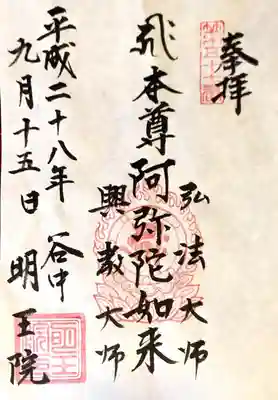 奉拝
弘法大師
本尊阿弥陀如来
興教大師
平成二十八年 谷中
九月十五日 明王院